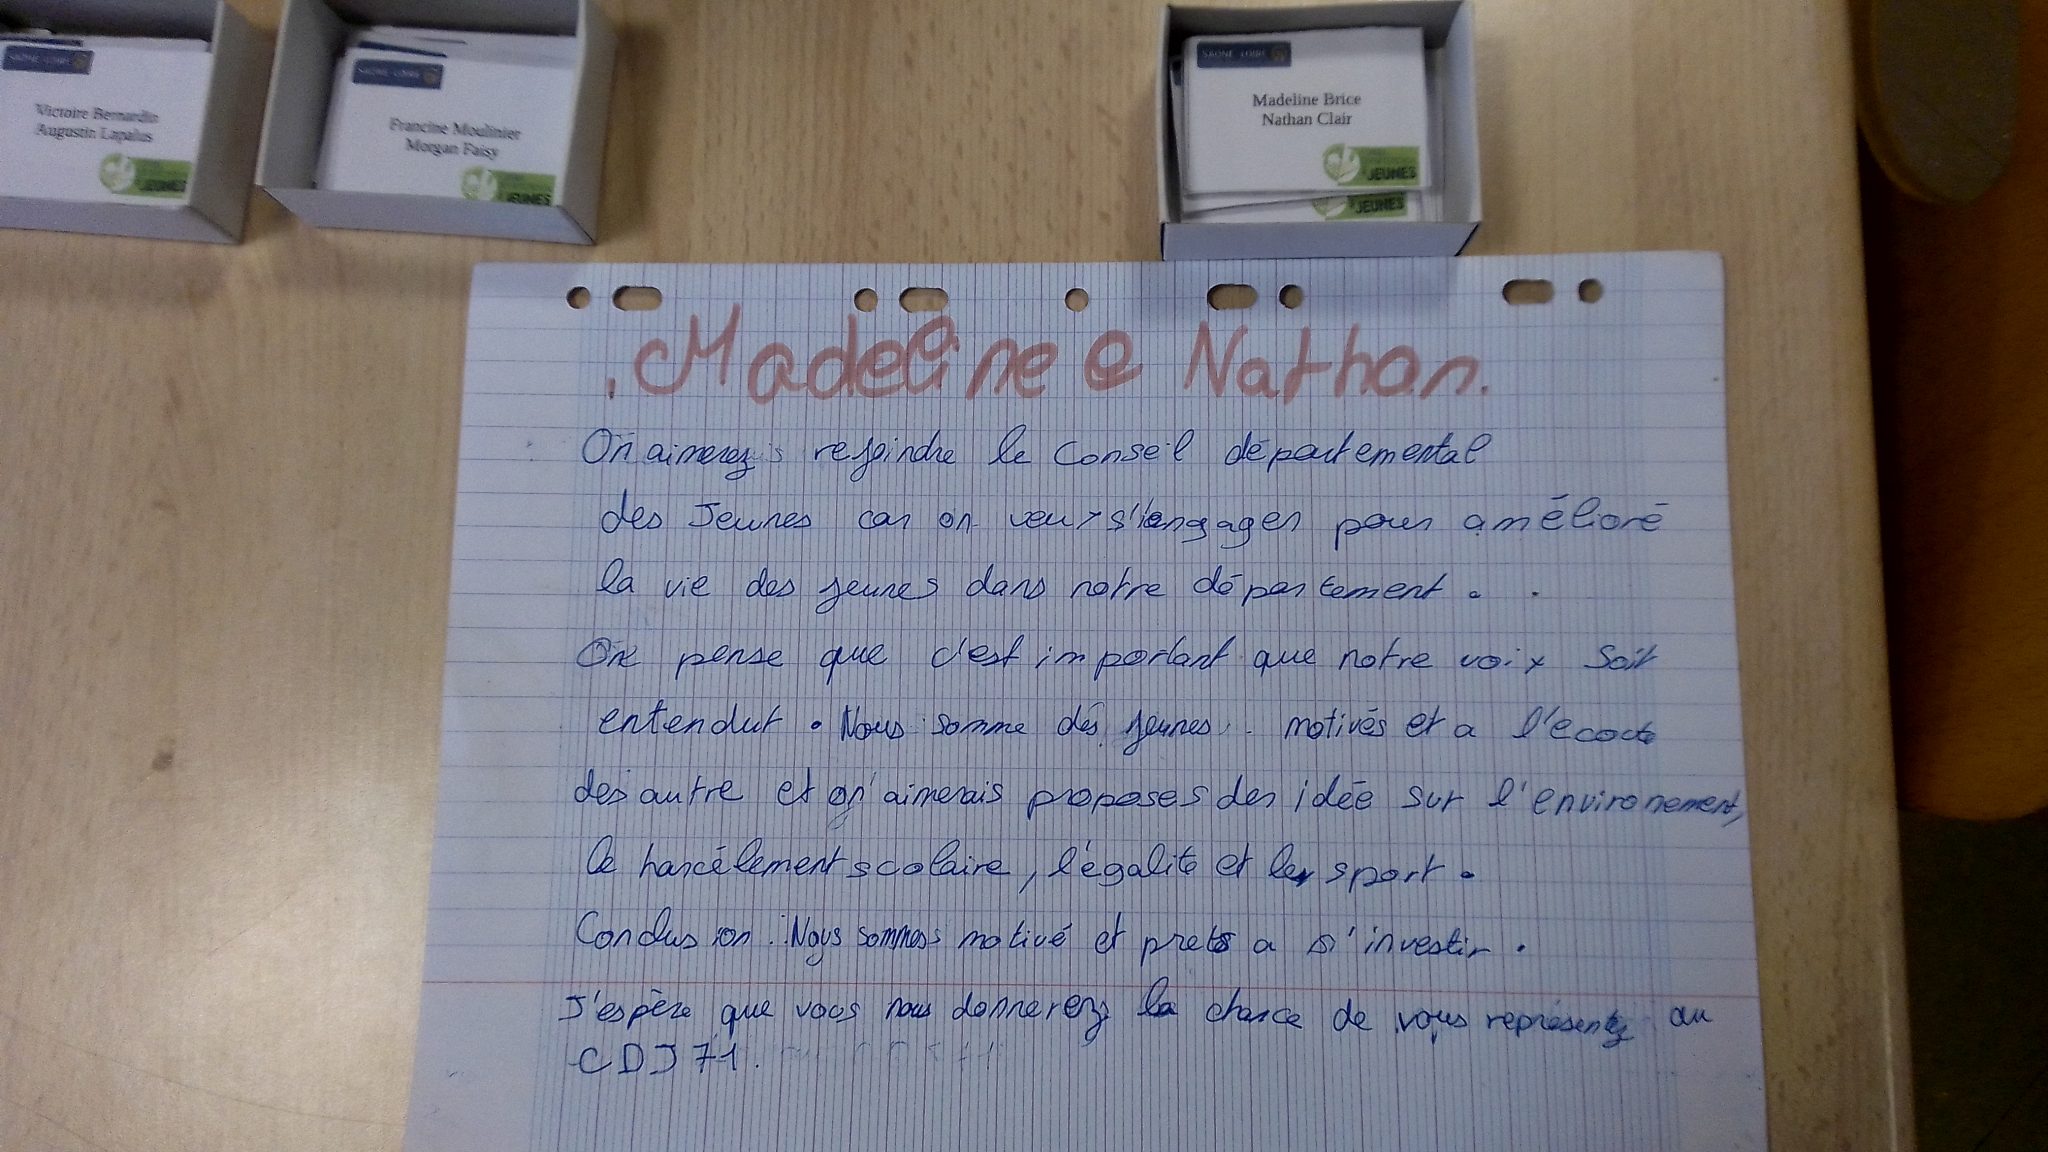 SAÔNE-LOIRE
Victoire Bernardin
Augustin Lapalus
JEUNES
SAÔNE-LOIRE
Francine Moulinier
Morgan Faisy
JEUNES
SAÔNE-LOIRE
Madeline Brice
Nathan Clair
JEUNES
JEUNES
. Madeline e Nathan.
On aimerez rejoindre le Conseil départemental
des Jeunes car on veux s'engager pour amélioré
la vie des jeunes dans notre département.
On pense que c'est important que notre voix soit
entendut. Nous somme des jeunes motivés et a l'ecoute
des autre et on aimerais proposer des idée sur l'environement,
le harcélement scolaire, l'égalité et le sport.
Conclusion. Nous sommes motivé et prets a s'investir.
J'espère que vous nous donnerez la chance de vous représentez au
CDJ 71.